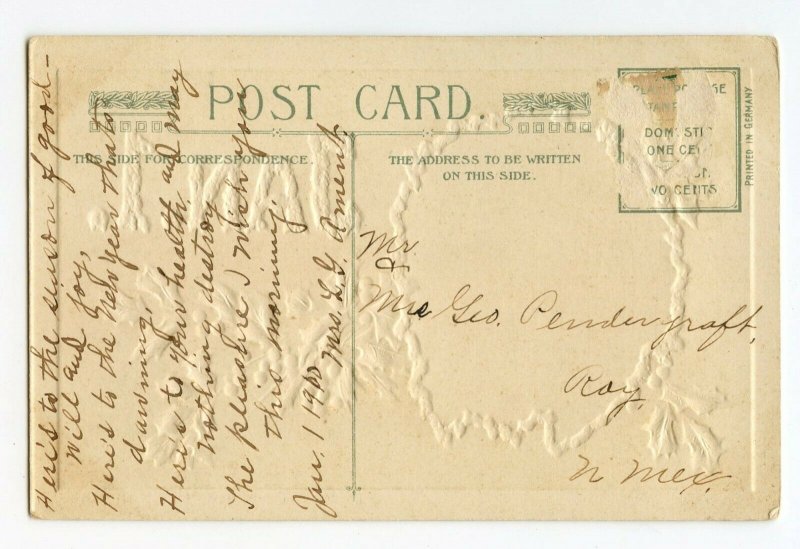 POST CARD.
THIS SIDE FOR CORRESPONDENCE.
THE ADDRESS TO BE WRITTEN
ON THIS SIDE.
DOMESTIC
ONE CENT
TWO CENTS
PRINTED IN GERMANY
JAN. 1.
Here's to the season of good-
will and joy,
Here's to the New year that's
dawning,
Here's to your health, and may
nothing destroy
The pleasure I wish you
this morning.
Mrs. L. G. Ament
Jan. 1 19
Mr
&
Mrs Geo. Pendergraft,
Roy,
N Mex.